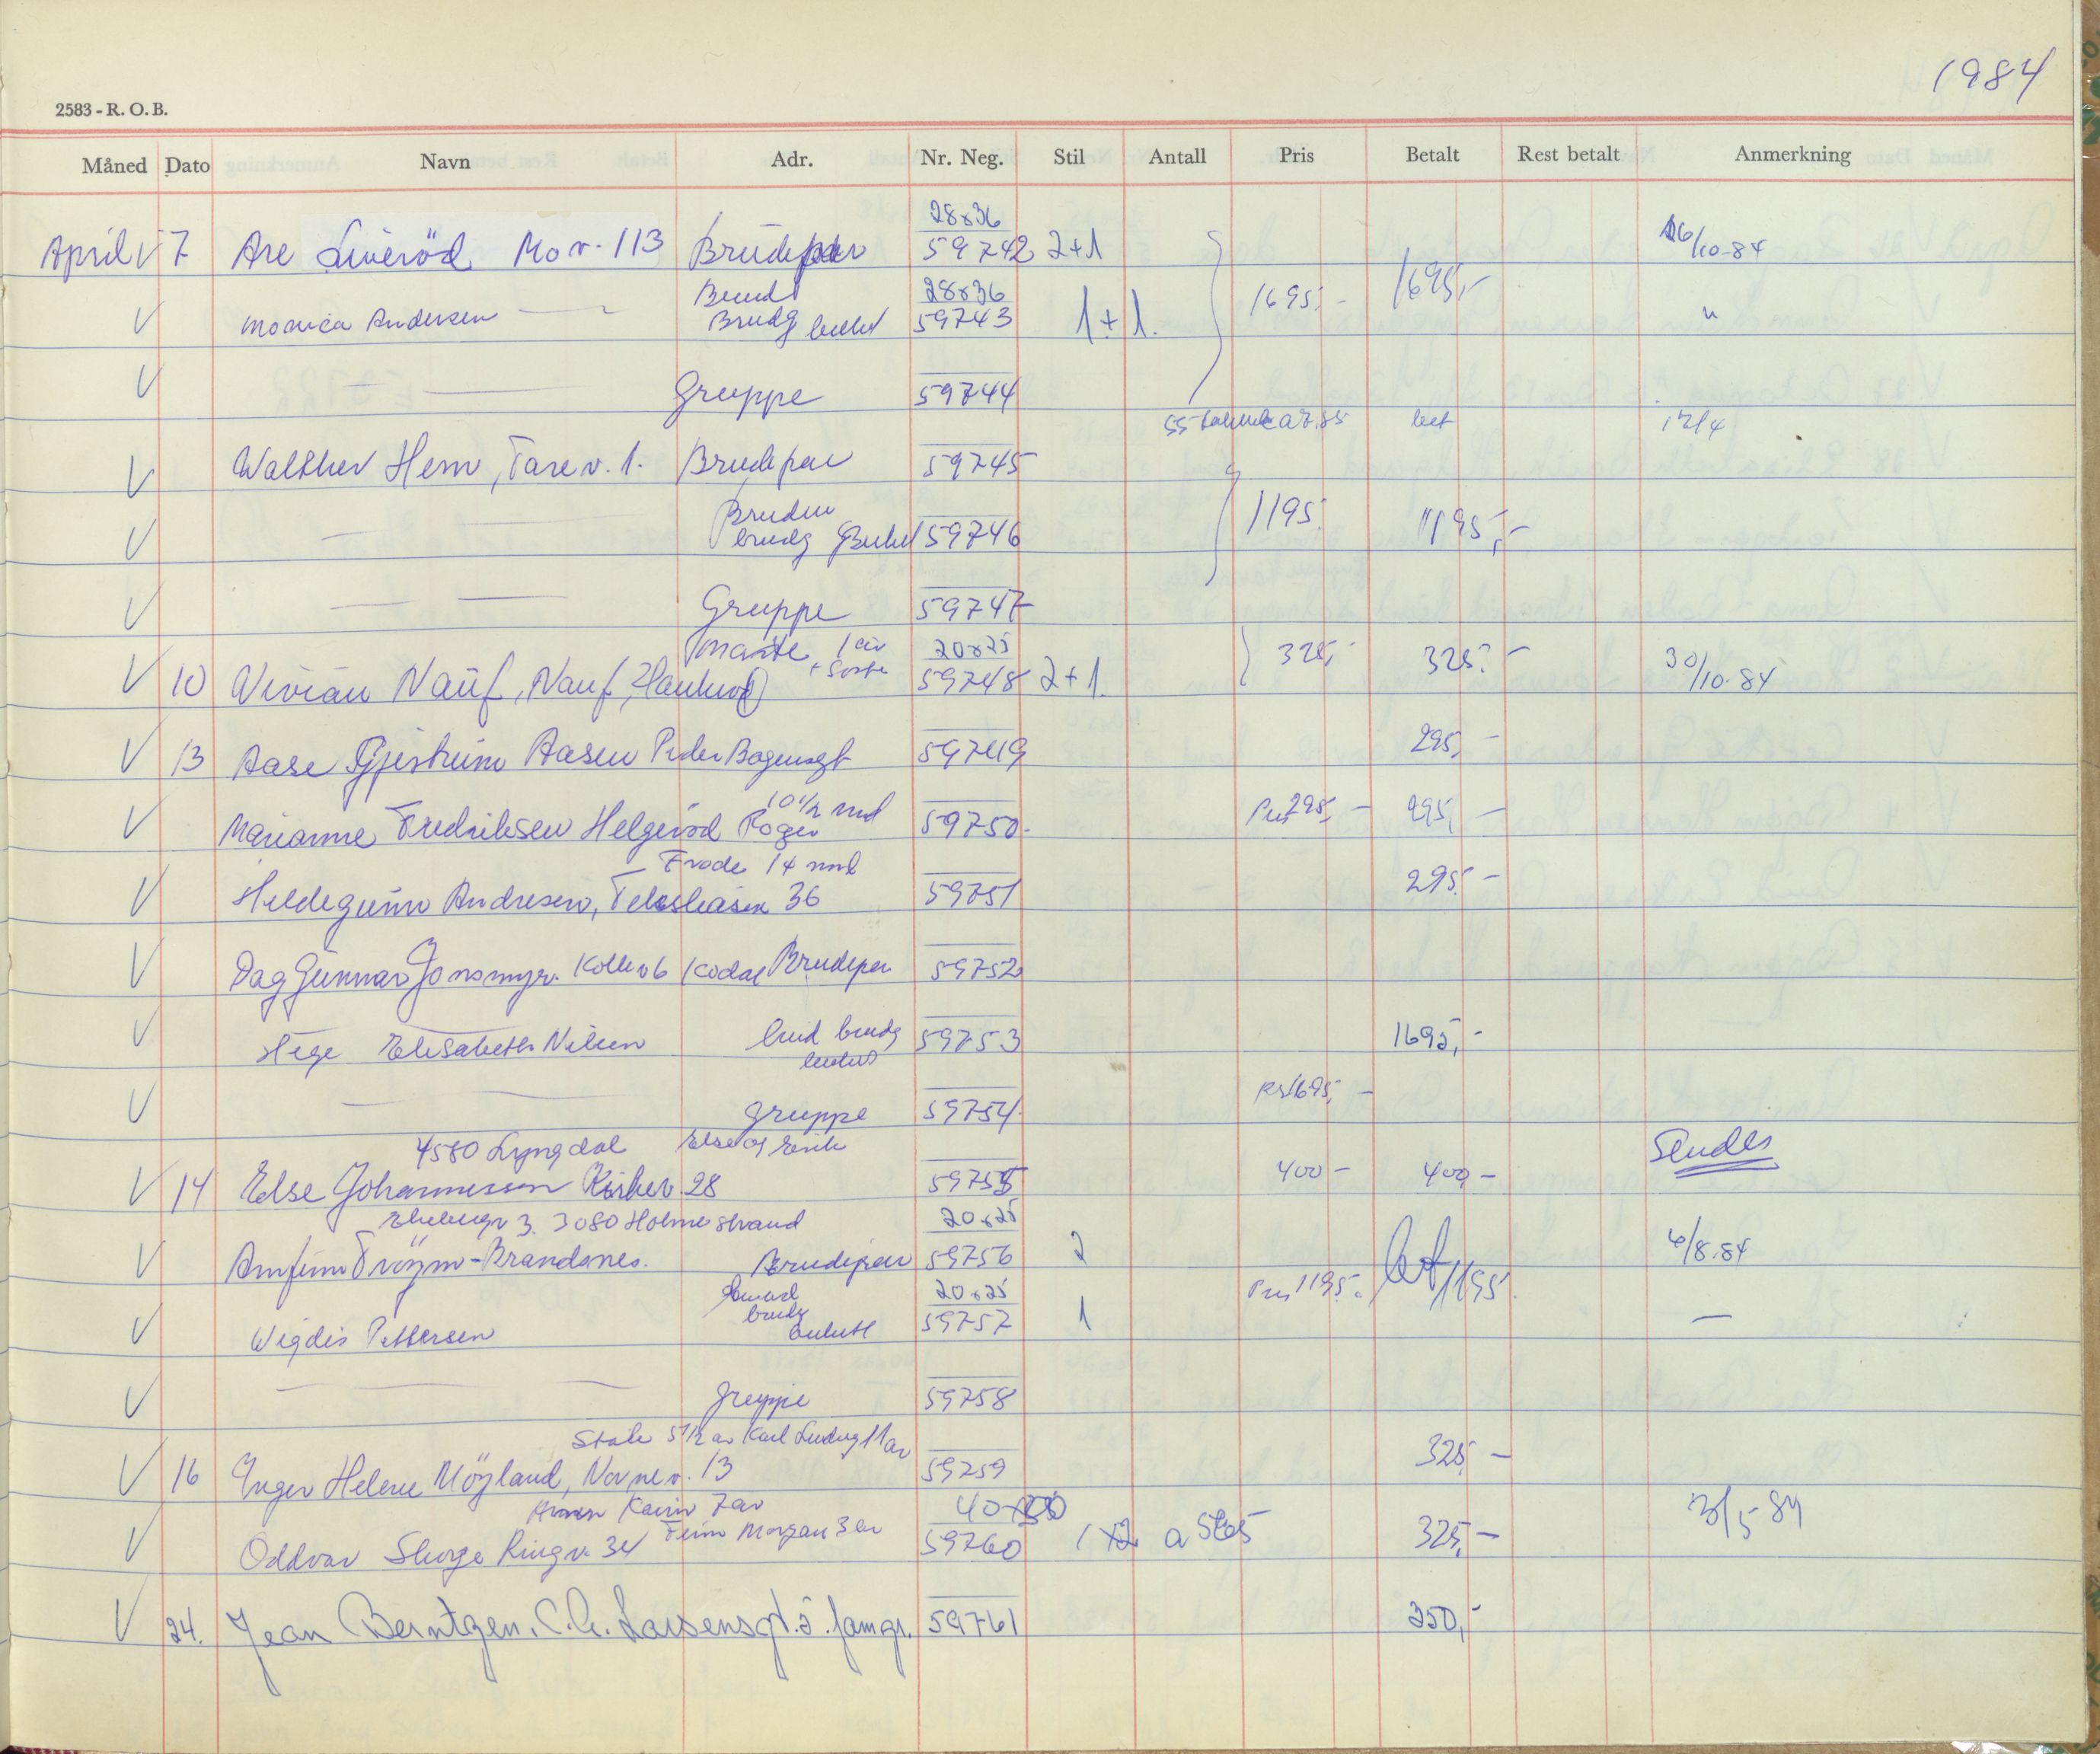 1984
2583 - R. O. B.
Måned Dato Navn Adr. Nr. Neg. Stil Antall Pris Betalt Rest betalt Anmerkning
28x36
April V 7 Are Liveröd Mo v. 113 Brudepar 59742 2+1 26/10-84
28x36
V Monica Andersen Brud Brudg 59743 1+1. 1695,- 1695,- "
V Gruppe 59744
55 bet 17/4
V Walther Hem, Tare v. 1. Brudepar 59745
V Bruden brudg 59746 1195,- 1195,-
V Gruppe 59747
Marte 1 år 20x25
V 10 Vivian Nauf, Nauf, 59748 2+1 325,- 325,- 30/10-84
V 13 Aase Gjestrum Aasen Peder Bogensgt 59749 295,-
10 1/2 mnd
V Marianne Fredriksen Helgeröd Roger 59750. Pris 295,- 295,-
Frode 14 mnd
V Hildegunn Andresen, 36 59751 295,-
V Dag Gunnar Jonsmyr. Koll v 6 Kodal Brudepar 59752
V Hege Elisabeth Nilsen brud brudg 59753 1695,-
V gruppe 59754 1695,-
4580 Lyngdal Else og Eirik
V 14 Else Johannessen Kirkev. 28 59755 400- 400,- Sendes
3. 3080 Holmestrand 20x25
V Arnfinn Tröym-Brandsnes. Brudepar 59756 2 6/8.84
20x25
V Wigdis Pettersen brudg 59757 1 Pris 1195,- bet 1195 —
V gruppe 59758
Ståle 5 1/2 år Karl Ludvig 11 år
V 16 Inger Helene Möyland, Norne v. 13 59759 325,-
Karin 7 år 40x50
V Oddvar Skorge Ringv. 34 Finn Morgan 3 år 59760 1x2 a 325,- 3/5-84
V 24. Jean Berntzen. C. A. Larsensgt. 2. famgr. 59761 350,-